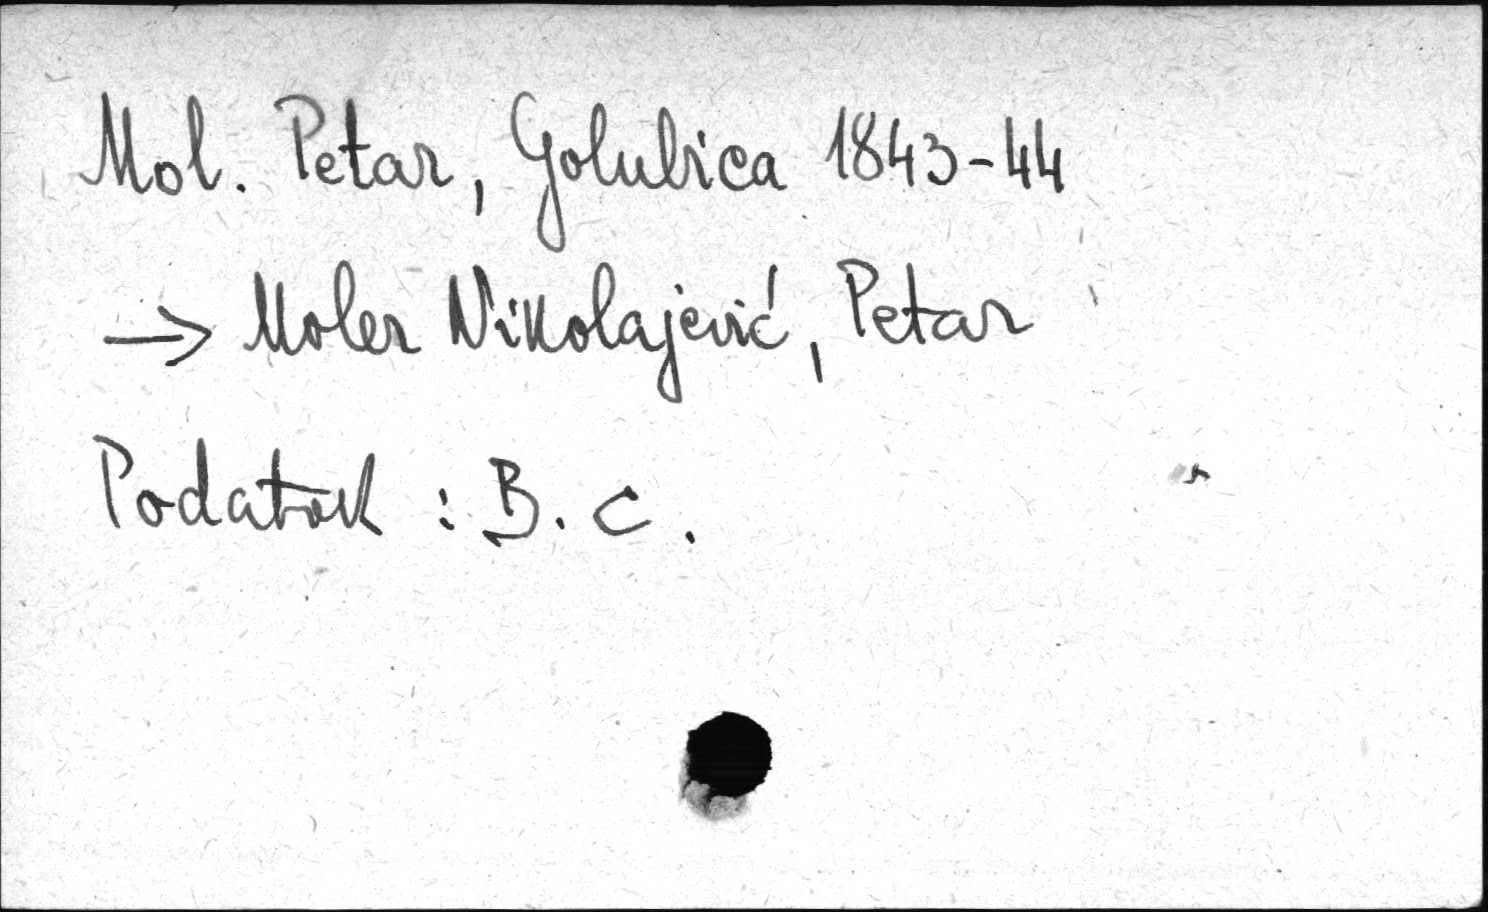 Mol. Petar, Golubica 1843-44
→ Moler Nikolajević, Petar
Podatak : B. C.